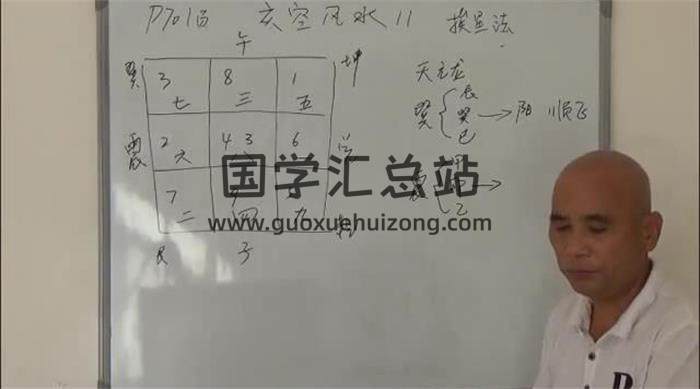 玄空风水 11 挨星法
午
巽 3 8 1 坤
七 三 五
天元龙
辰
巽 巽 → 阳 顺飞
巳
震 2 4 3 6
六
国学汇总站
甲
震 →
乙
7
www.guoxuehuizong.com
二 四 九
艮 子